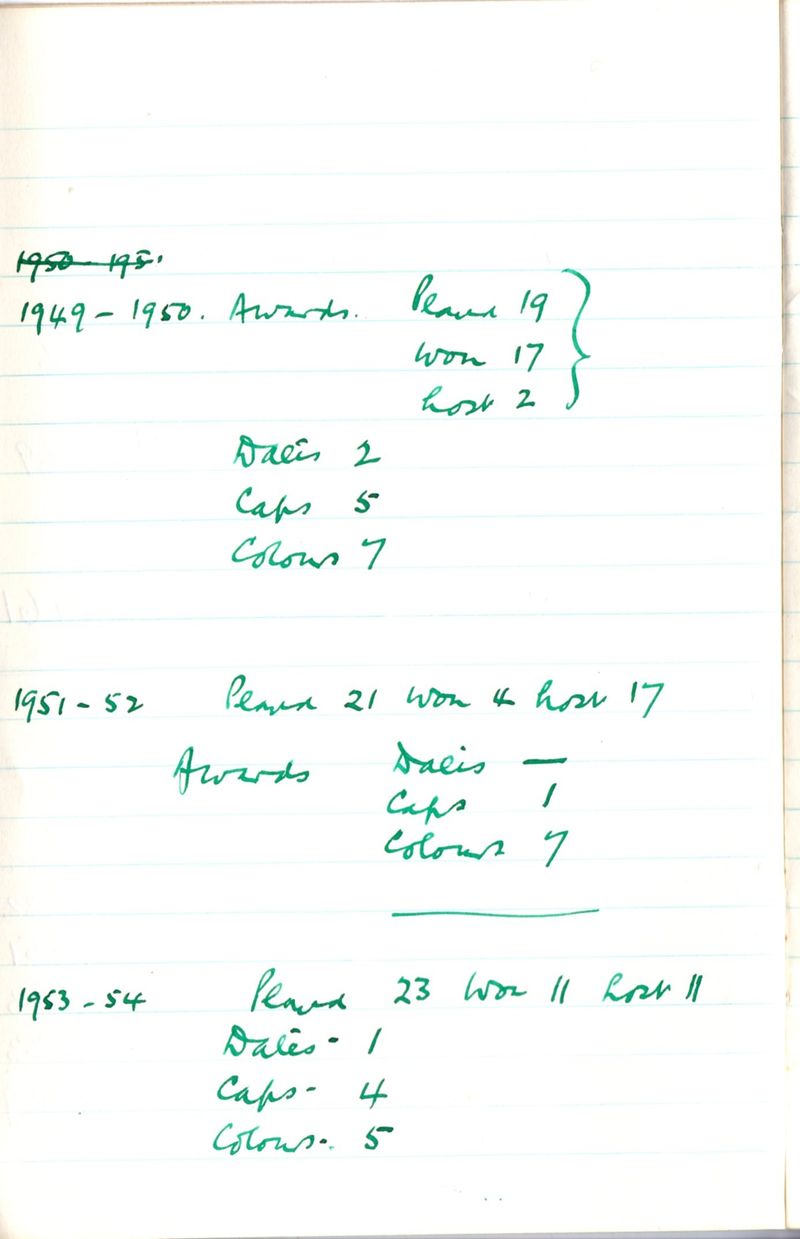 1950-1951
1949-1950. Awards. Played 19
Won 17
Lost 2
Dates 2
Caps 5
Colours 7
1951-52 Played 21 Won 4 Lost 17
Awards Dates —
Caps 1
Colours 7
1953-54 Played 23 Won 11 Lost 11
Dates - 1
Caps - 4
Colours -. 5